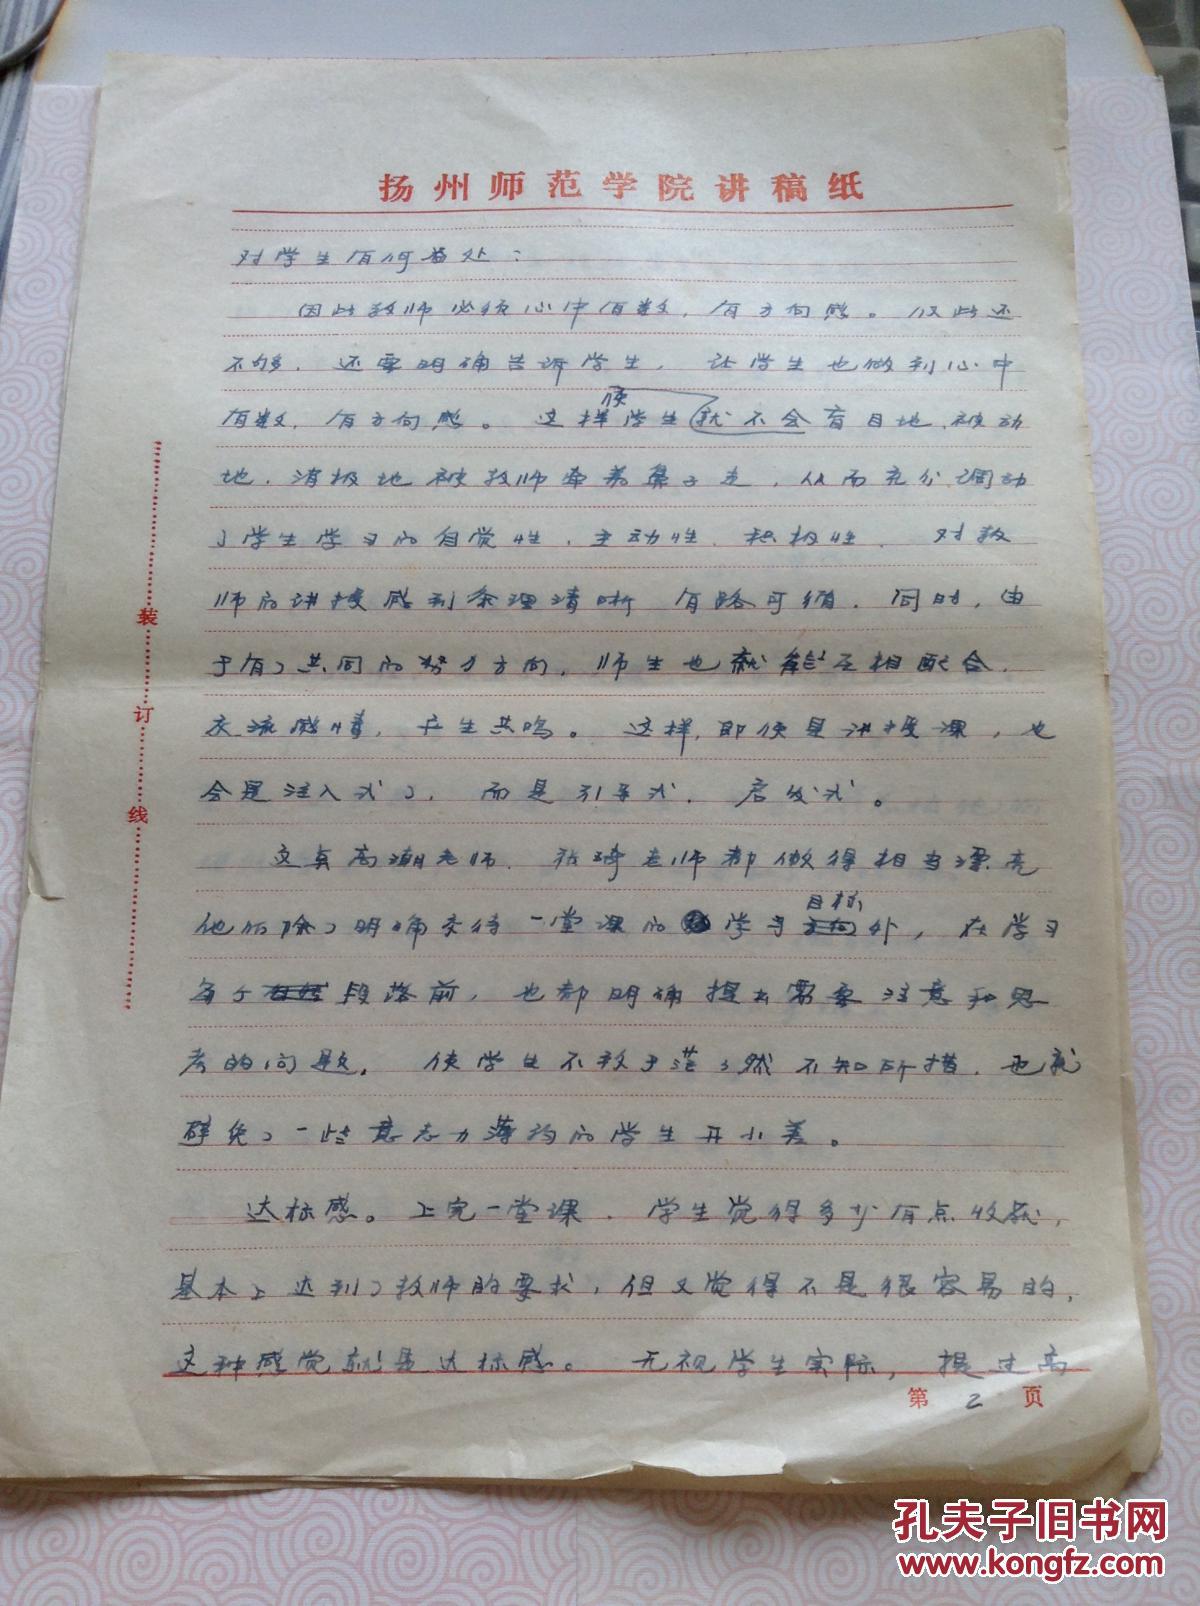 扬州师范学院讲稿纸
对学生有何益处：
因此教师必须心中有数，有方向感。仅此还
不够，还要明确告诉学生，让学生也做到心中
有数，有方向感。这样使学生就不会盲目地、被动
地、消极地被教师牵着鼻子走，从而充分调动
了学生学习的自觉性、主动性、积极性，对教
师的讲授感到条理清晰 有路可循。同时，由
于有了共同的努力方向，师生也就能互相配合，
交流感情，产生共鸣。这样，即使是讲授课，也
会是注入式了，而是引导式、启发式。
高潮老师、张琦老师都做得相当漂亮
他们除了明确交待一堂课的学习目标外，在学习
每个段落前，也都明确提出需要注意和思
考的问题，使学生不致于茫茫然不知所措，也就
避免了一些意志力薄弱的学生开小差。
达标感。上完一堂课，学生觉得多少有点收获，
基本上达到了教师的要求，但又觉得不是很容易的，
这种感觉就是达标感。无视学生实际，提过高
第 2 页
装
订
线
孔夫子旧书网
www.kongfz.com